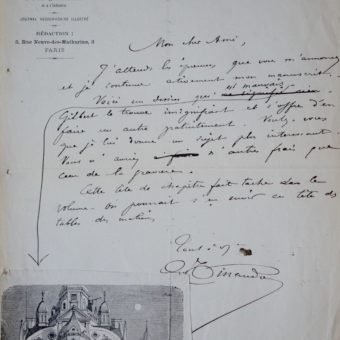 et à l'Industrie
JOURNAL HEBDOMADAIRE ILLUSTRÉ
RÉDACTION :
5, Rue Neuve-des-Mathurins, 5
PARIS
Mon cher Ami,
J'attends les épreuves que vous m'annoncez
et je continue activement mon manuscrit.
Voici un dessin qui est mauvais
Gilbert le trouve insignifiant et s'offre d'en
faire un autre gratuitement. Voulez-vous
que je lui donne un sujet plus intéressant
Vous n'auriez à autre frais que
ceux de la gravure.
Cette tête de chapitre fait tache dans le
volume. On pourrait s'en servir en tête des
tables des matières
Tout à vous
Tissandier